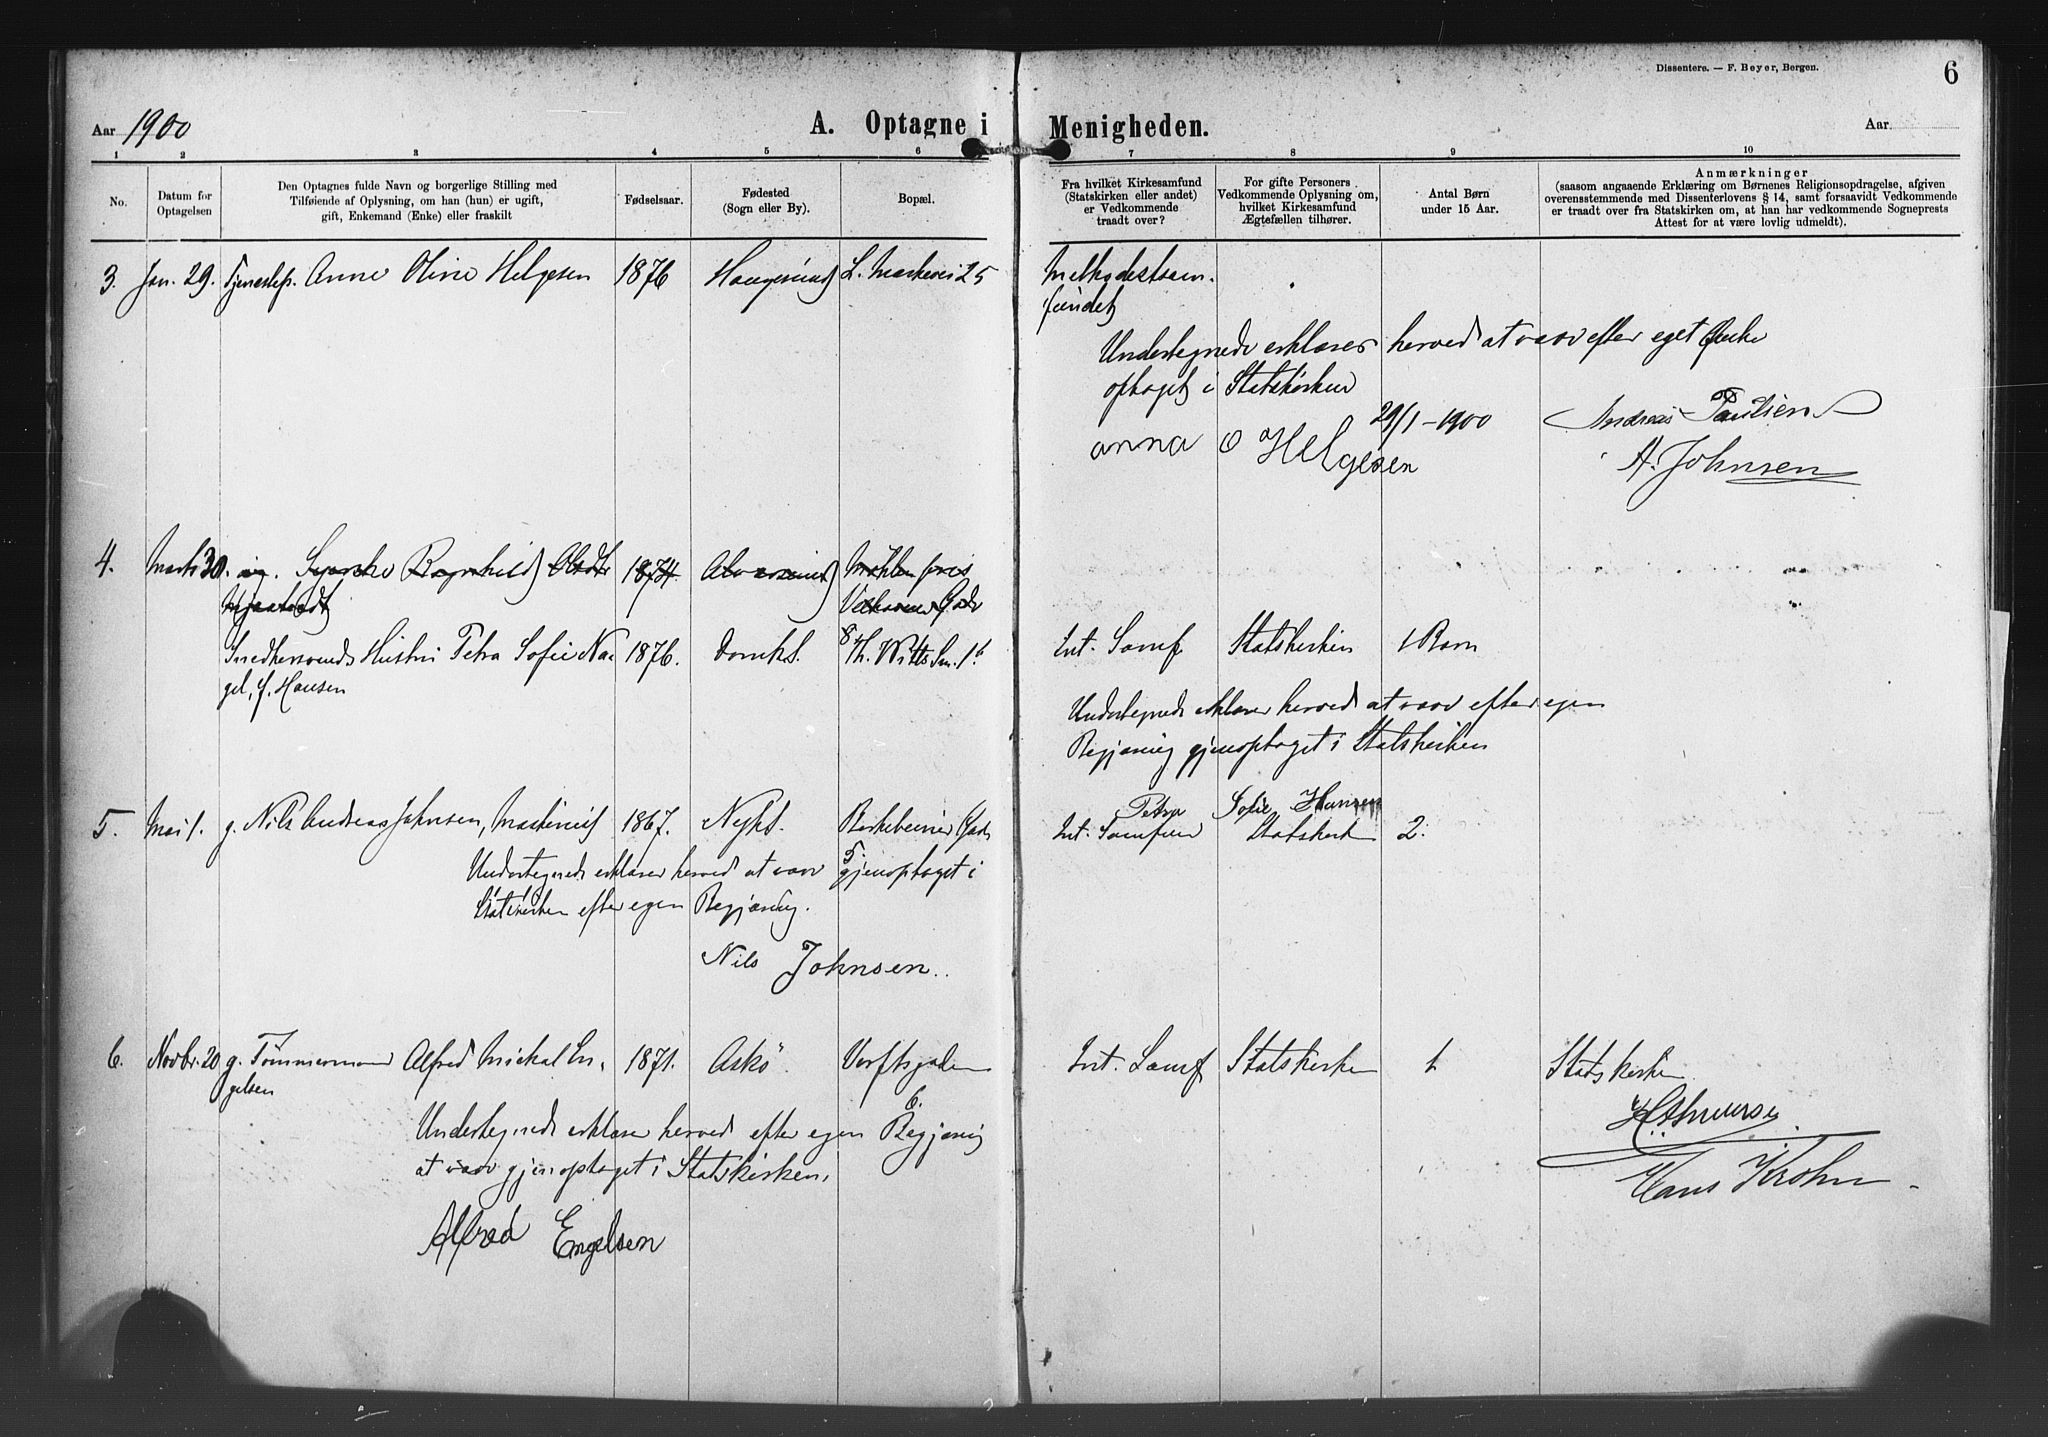 Dissentere. — F. Beyer, Bergen.
6
Aar 1900
A. Optagne i Menigheden.
Aar
1 2 3 4 5 6 7 8 9 10
No.
Datum for
Optagelsen
Den Optagnes fulde Navn og borgerlige Stilling med
Tilføiende af Oplysning, om han (hun) er ugift,
gift, Enkemand (Enke) eller fraskilt
Fødselsaar.
Fødested
(Sogn eller By).
Bopæl.
Fra hvilket Kirkesamfund
(Statskirken eller andet)
er Vedkommende
traadt over?
For gifte Personers
Vedkommende Oplysning om,
hvilket Kirkesamfund
Ægtefællen tilhører.
Antal Børn
under 15 Aar.
Anmærkninger
(saasom angaaende Erklæring om Børnenes Religionsopdragelse, afgiven
overensstemmende med Dissenterlovens § 14, samt forsaavidt Vedkommende
er traadt over fra Statskirken om, at han har vedkommende Sogneprests
Attest for at være lovlig udmeldt).
3. Jan. 29. Tjenestep. Anne Oline Helgesen 1876 Haugesund L. Markevei 25 Methodistsam-
fundet
Undertegnede erklærer herved at være efter eget Ønske
optaget i Statskirken
29/1-1900
Anna O Helgesen
Andreas Paulsen
A. Johnsen
4. Marts 30. Ragnhild 1874
Snedkersvends Hustru Petra Sofie Na- 1876. Domk S. Th. Witts Sm. 16 Int. Samf. Statskirken 1 Barn
gel, f. Hansen
Undertegnede erklærer herved at være efter egen
Begjæring gjenoptaget i Statskirken
Petra Sofie Hansen
5. Mai 1. g. Nils Andreas Johnsen, Maskinist 1867. Nyk S. Birkebeiner Gad. Int. Samfund Statskirk 2.
5.
Undertegnede erklærer herved at være gjenoptaget i
Statskirken efter egen Begjæring.
Nils Johnsen.
6. Novbr. 20 g. Tømmermand Alfred Mickal En- 1871. Askö Verftsgaden Int. Samf Statskirken 1 Statskirken
gelsen
6.
Undertegnede erklærer herved efter egen Begjæring
at være gjenoptaget i Statskirken.
Alfred Engelsen
Hans Krohn